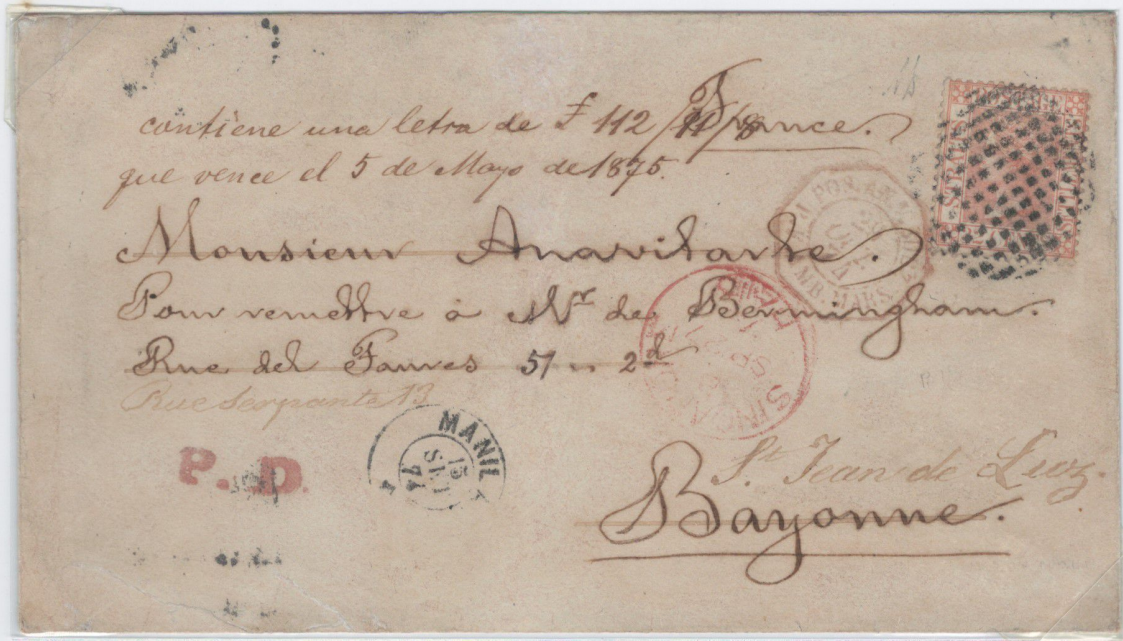 contiene una letra de £ 112/11/8 France.
que vence el 5 de Mayo de 1875.
Monsieur Anavitarte.
Pour remettre a Mr de Bermingham.
Rue del Faures 51 2d
Rue Serpante 13
St Jean de Luz.
Bayonne.
P.D.
MANILA
15
74